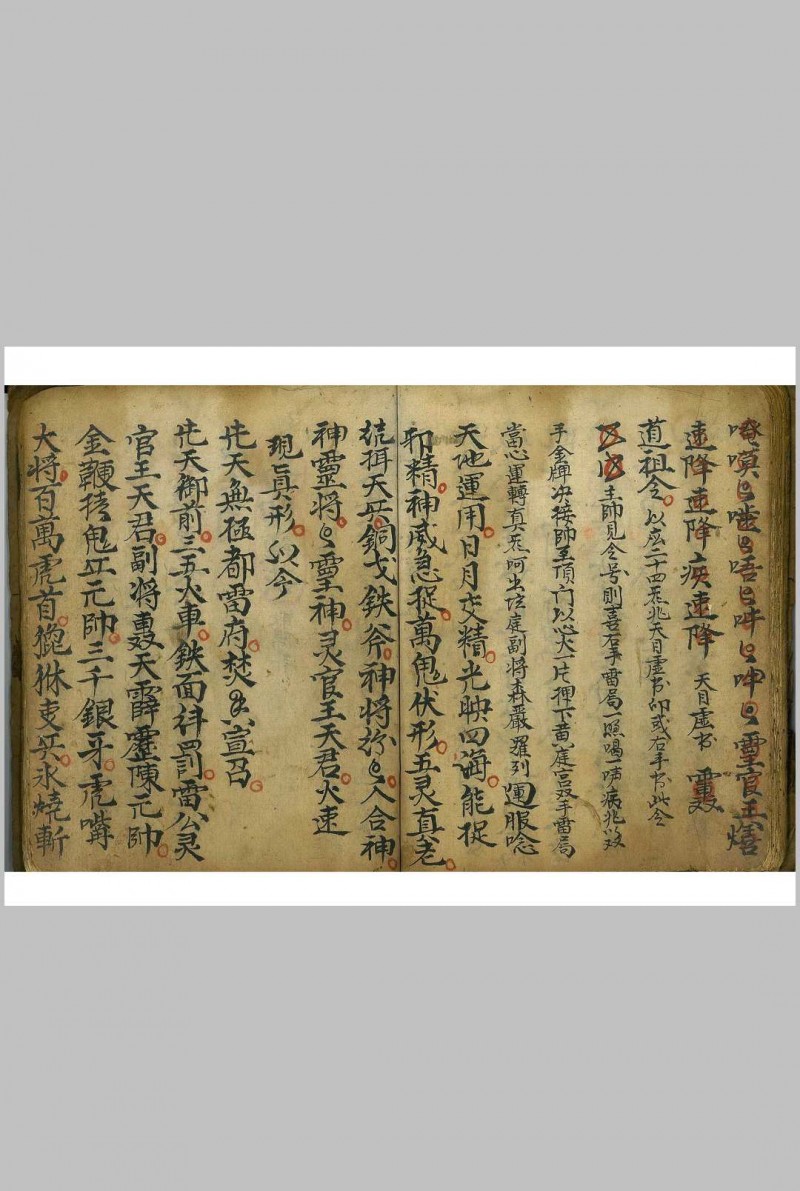 嗔〻噠〻唔〻吽〻呻〻靈官王熺
速降速降疾速降 天目虚书
道祖令 以広二十四炁北天目虚书卯或右手书此令
主帅見令号則喜右手雷局一照喝一声病北以双
手金牌决接帅至頂门以心火一片押下黄庭宫双手雷局
當心運轉真炁呵出坛庭副將森嚴羅列運服唸
天地運用日月交精光映四海能捉
邪精神威急捉萬鬼伏形五灵真老
統揖天兵銅戈鉄斧神將紛〻入合神
神靈將〻靈神灵官王天君火速
現真形以今
先天無極都雷府焚〻宣召
先天御前三五火車鉄面祥罰雷公灵
官王天君副將轟天霹靂陳元帅
金鞭捉鬼丘元帅三千銀牙虎嘴
大將百萬虎首貔貅吏兵永燒斬